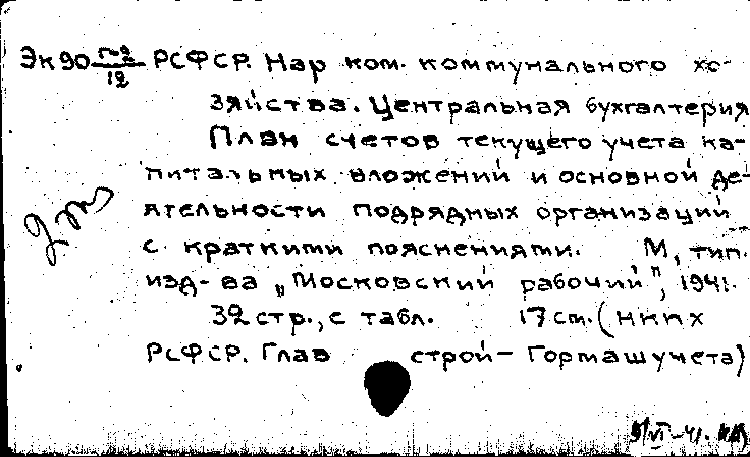 Эк90 г-2/12 РСФСР. Нар ком. коммунального хо-
зяйства. Центральная бухгалтерия
План счетов текущего учета ка-
питальных вложений и основной де-
ятельности подрядных организаций
с краткими пояснениями. М, тип.
изд-ва „Московский рабочий", 1941.
32 стр., с табл. 17 см. (НККХ
РСФСР. Глав строй – Гормашучета)
2 т
VI-41.